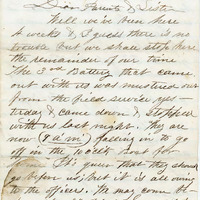 Dear Parents & Sister
Well we've been here
4 weeks & I guess there is no
but we shall stop here
the remainder of our time
The 3rd Battery that came
out with us was mustered out
from the field service yes-
terday & came down & stopped
with us last night. They are
now (9 a.m.) falling in to go
off in the
I guess that they should
go before us; but it is all owing
to the officers. We may come th-